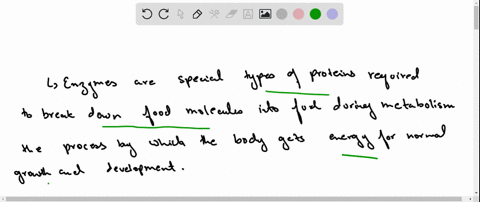 ↳ Enzymes are special types of proteins required
to break down food molecules into fuel during metabolism
the process by which the body gets energy for normal
growth and development.